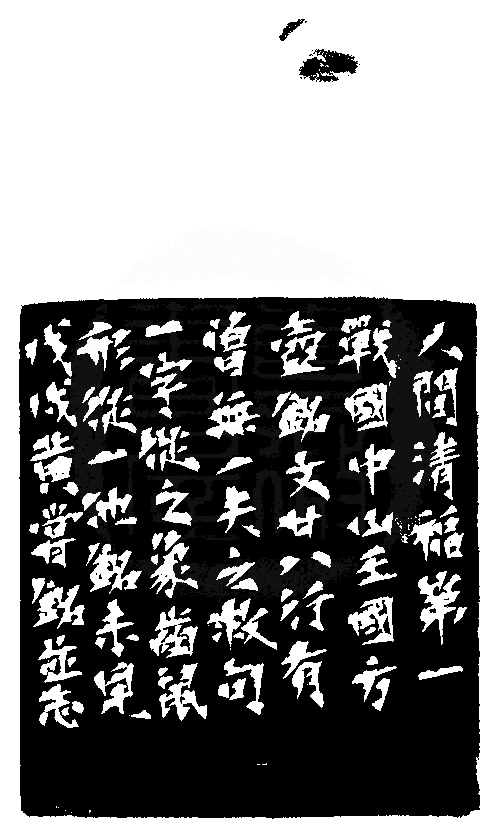 人間清福第一
戰國中山王國方
壺銘文廿八行有
曾無一夫之救句
一字從之象齒鼠
形從一池銘未見
戊戌黄嘗銘並志